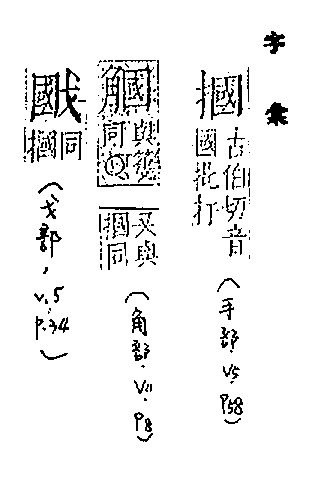 字彙
摑
古伯切音
國批打
(手部, v5, p58)
與
同○
又與
摑同
(角部, v11, p8)
同
摑
(戈部, v.5 p.34)